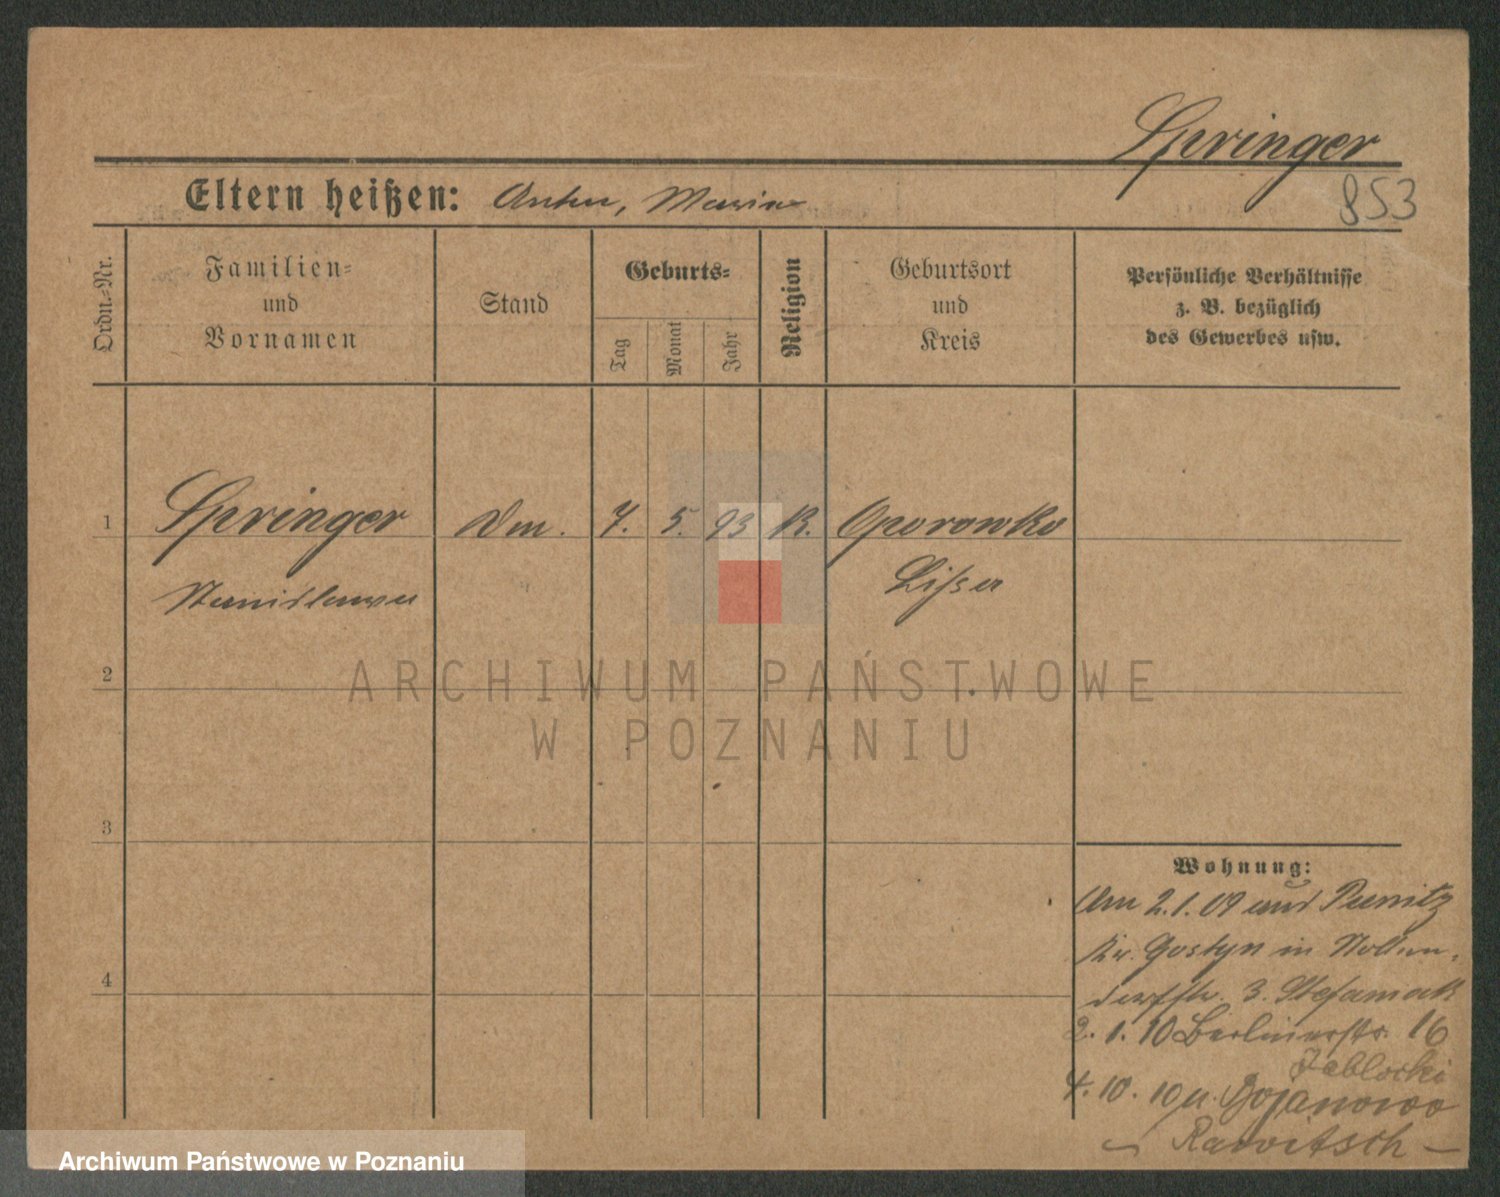 Springer
853
Eltern heißen: Anton, Maria
Ordn.-Nr.
Familien-
und
Vornamen
Stand
Geburts-
Tag
Monat
Jahr
Religion
Geburtsort
und
Kreis
Persönliche Verhältnisse
z. B. bezüglich
des Gewerbes usw.
1 Springer Dm. 7. 5. 93 K. Oporowko
Stanislawa Lissa
2
3
4
Wohnung:
Am 2.1.09 aus Punitz
Kr. Gostyn in Nollen-
dorfstr. 3. Stefaniak
2. 1. 10 Berlinerstr. 16
Jablocki
4. 10. 10 n. Bojanowo
Rawitsch
ARCHIWUM PAŃSTWOWE
W POZNANIU
Archiwum Państwowe w Poznaniu